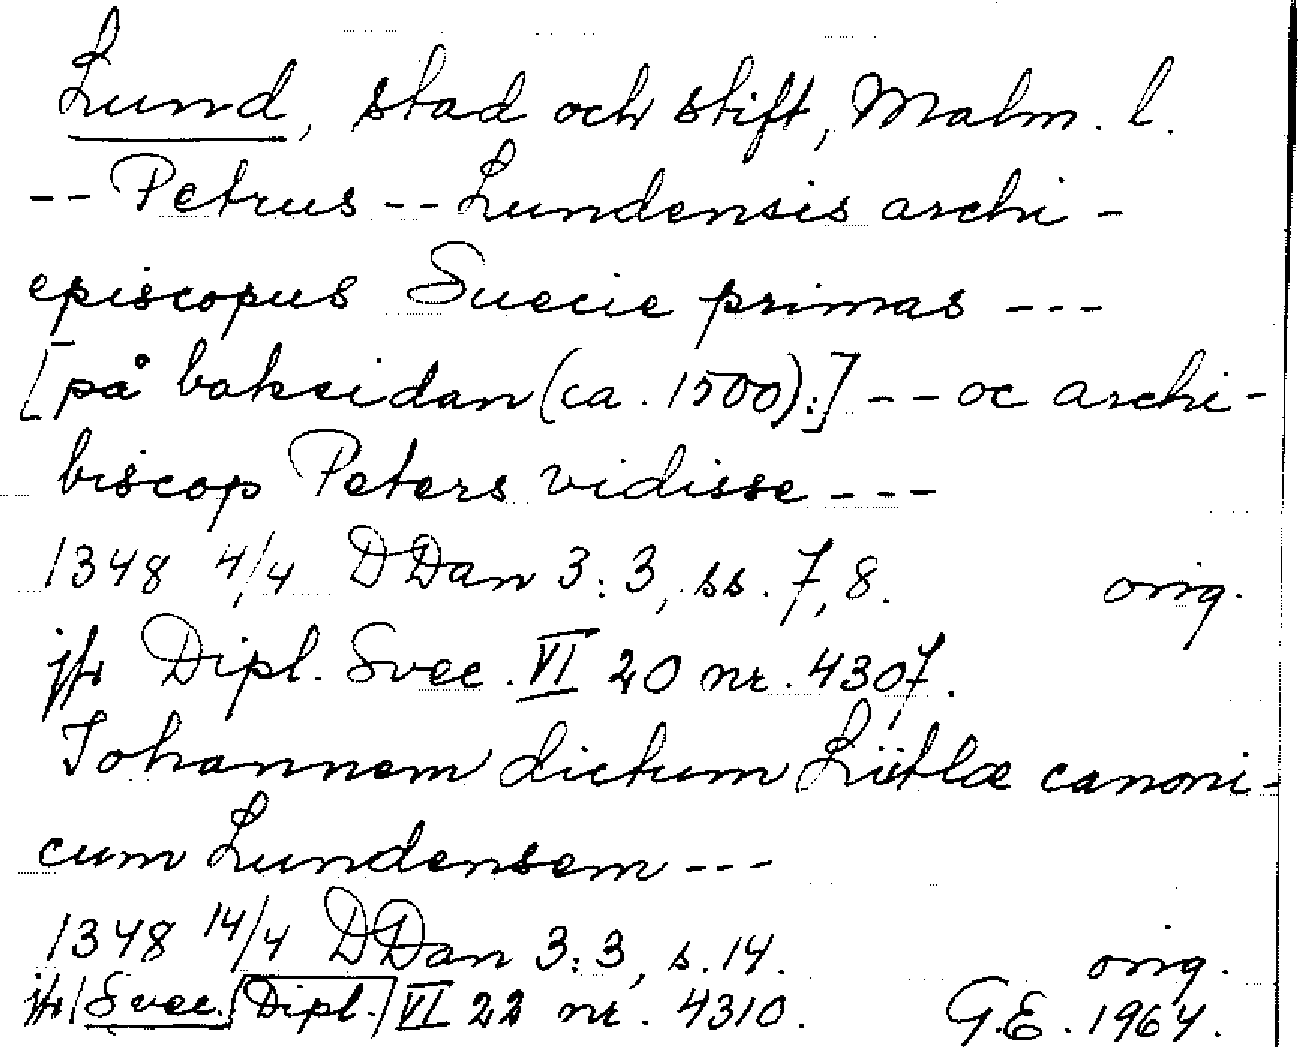 Lund, stad och stift, Malm. l.
-- Petrus -- Lundensis archi-
episcopus Suecie primas ---
[på baksidan (ca. 1500):] -- oc archi-
biscop Peters vidisse ---
1348 4/4 DDan 3:3, ss. 7, 8. orig.
jfr Dipl. Svec. VI 20 nr. 4307.
Johannem dictum Lütlæ canoni-
cum Lundensem ---
1348 14/4 DDan 3:3, s. 14. orig.
jfr |Svec.| Dipl.| VI 22 nr. 4310. G.E. 1964.